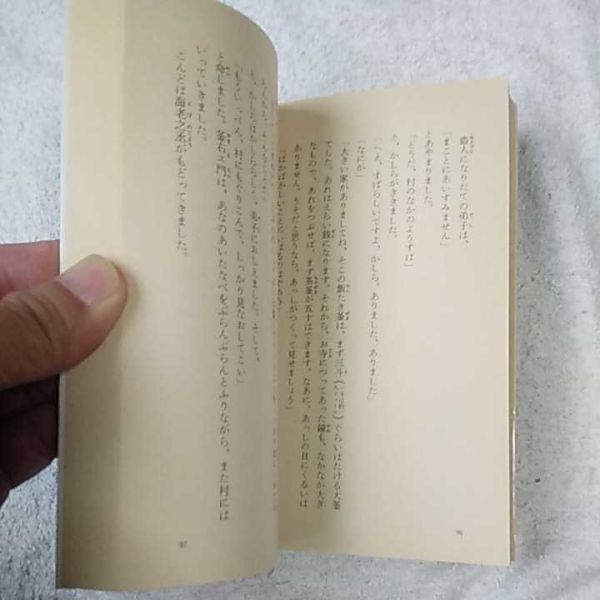 盗人になりたての弟子は、
「まことにあいすみません」
とあやまりました。
「どうだ、村のなかのようすは」
と、かしらがききました。
「へえ、すばらしいですよ、かしら。ありました、ありました」
「なにが」
「大きい家がありましてね、そこの飯たき釜は、まず三斗ぐらいはたける大釜
でした。あれはえらい銭になります。それから、お寺につってあった鐘も、なかなか大き
なもので、あれをつぶせば、まず茶釜が五十はできます。なあに、あっしの目にくるいは
ありません。うそだと思うなら、あっしがつくって見せましょう」
「ばかばかしいことに
96
弟子におしえました。そして、
「もういっぺん、村にもぐりこんで、しっかり見なおしてこい」
と命じました。釜右ヱ門は、あなのあいたなべをぶらんぶらんとふりながら、また村には
いっていきました。
こんどは海老之丞がもどってきました。
97